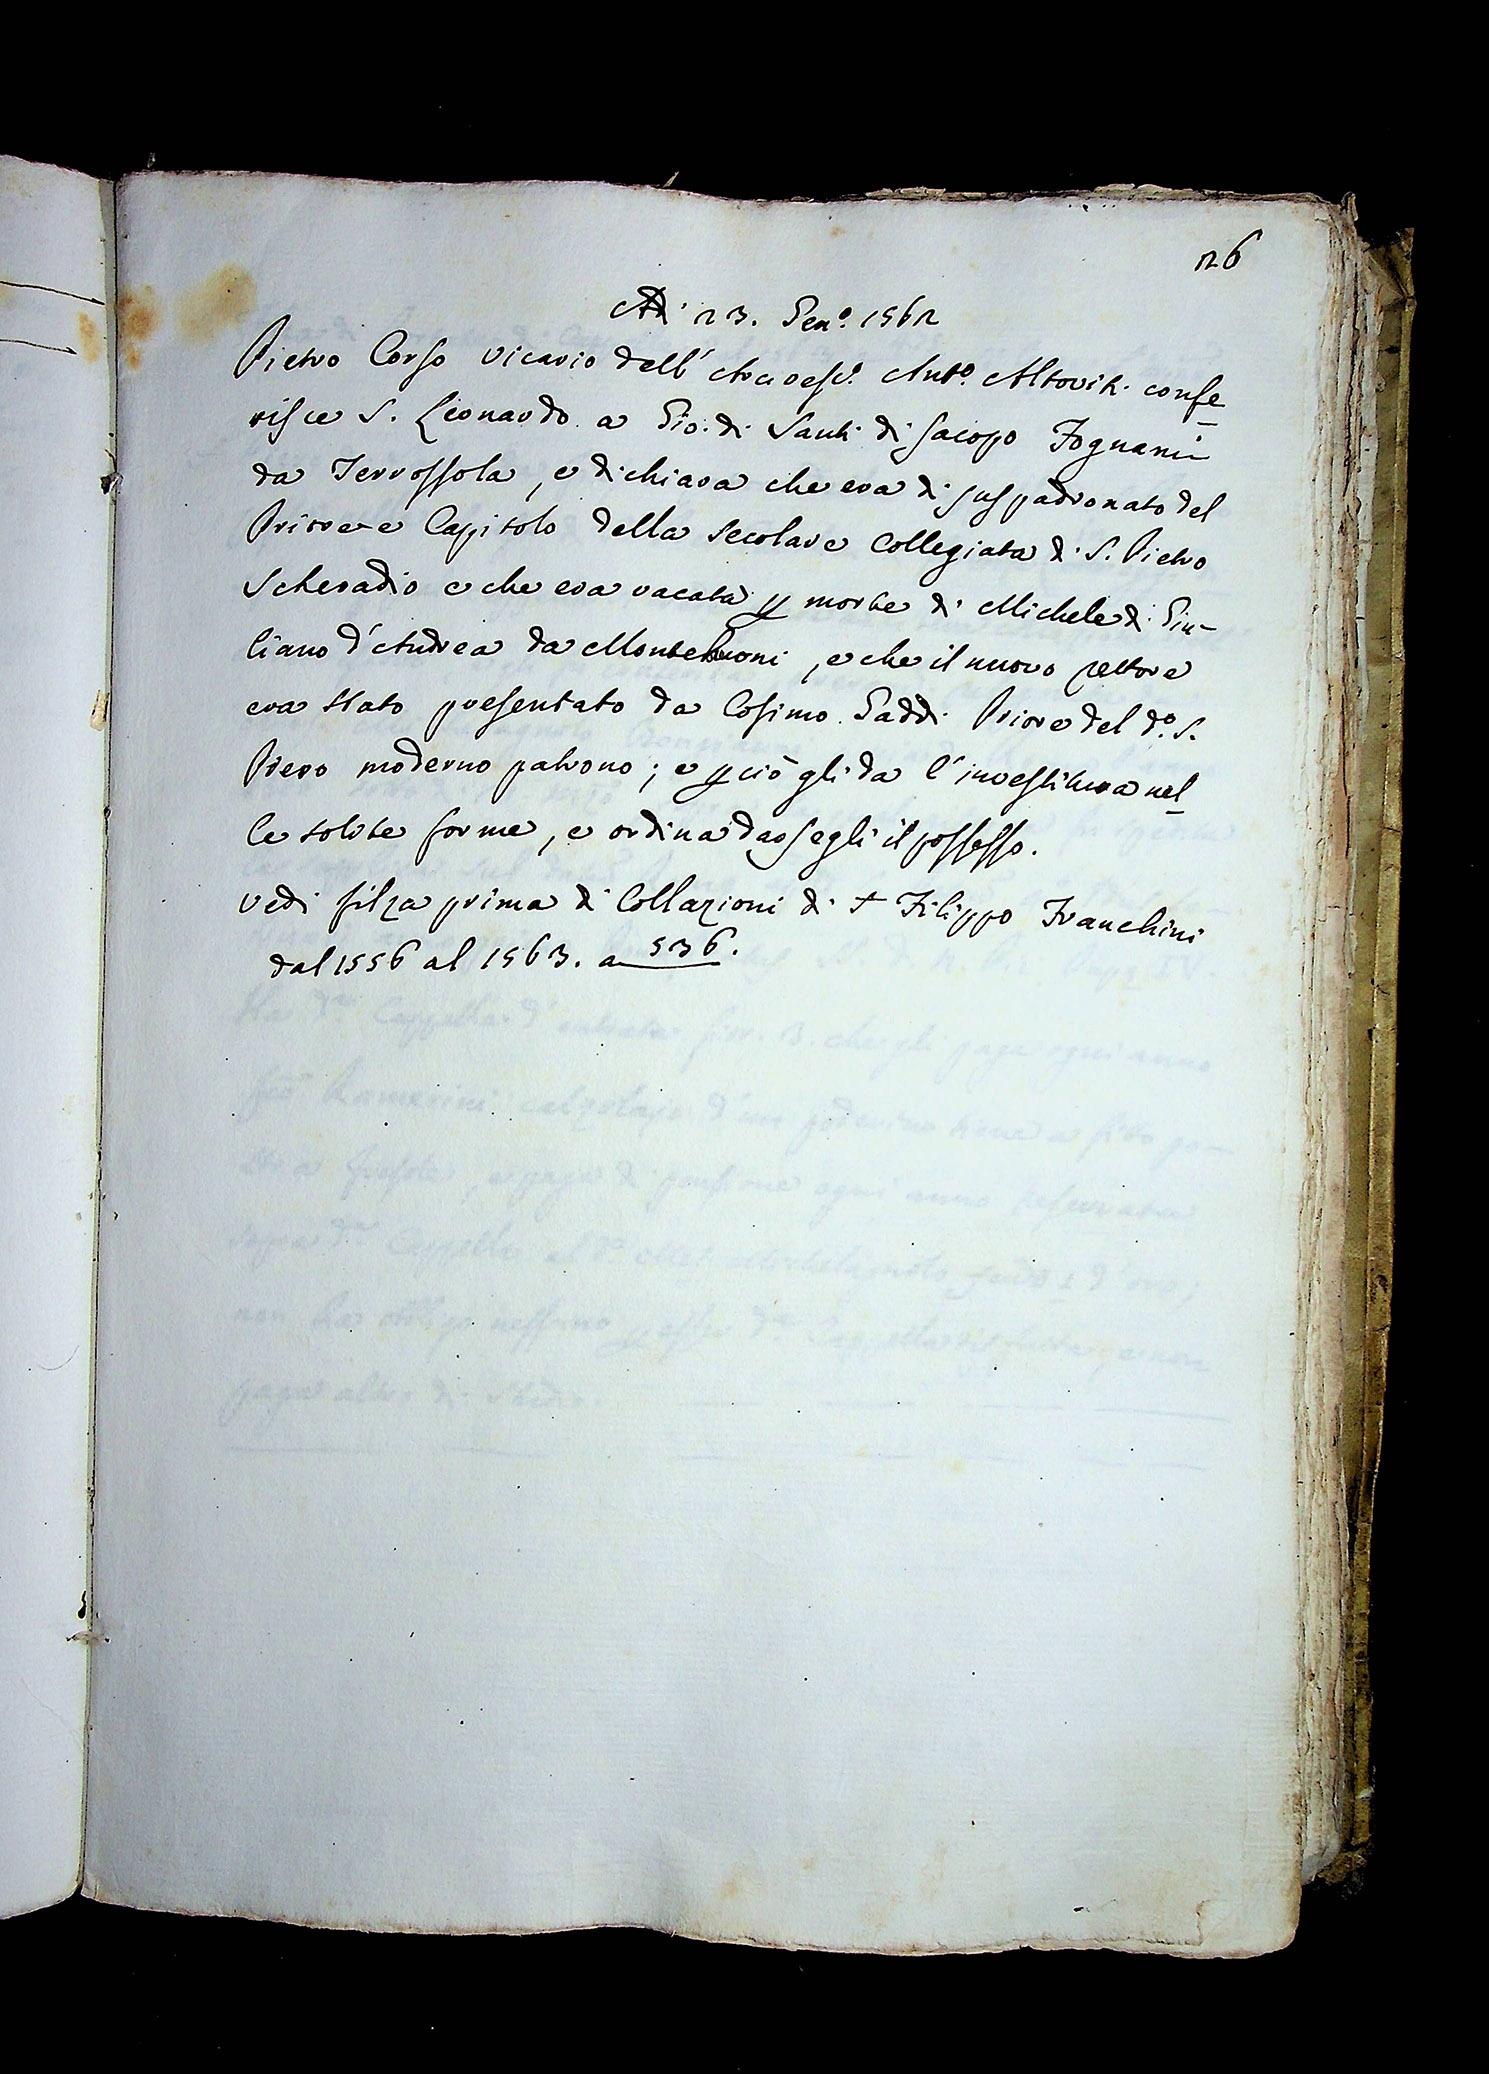 26
Adì 23. Gen.º 1562
Pietro Corso Vicario dell' Arcivesc.º Ant.º Altoviti confe
risce S. Leonardo a Gio. di Santi di Jacopo Fognani
da Terrossola, e dichiara che era di juspadronato del
Priore e Capitolo della secolare Collegiata di S. Pietro
Scheradio e che era vacata p morte di Michele di Giu-
liano d'Andrea da Montebuoni, e che il nuovo rettore
era stato presentato da Cosimo Gaddi Priore del d.º S.
Piero moderno patrono; e p ciò gli da l'investitura nel
le solite forme, e ordina darsegli il possesso.
Vedi filza prima di Collazioni di Filippo Franchini
dal 1556 al 1563. a 536.